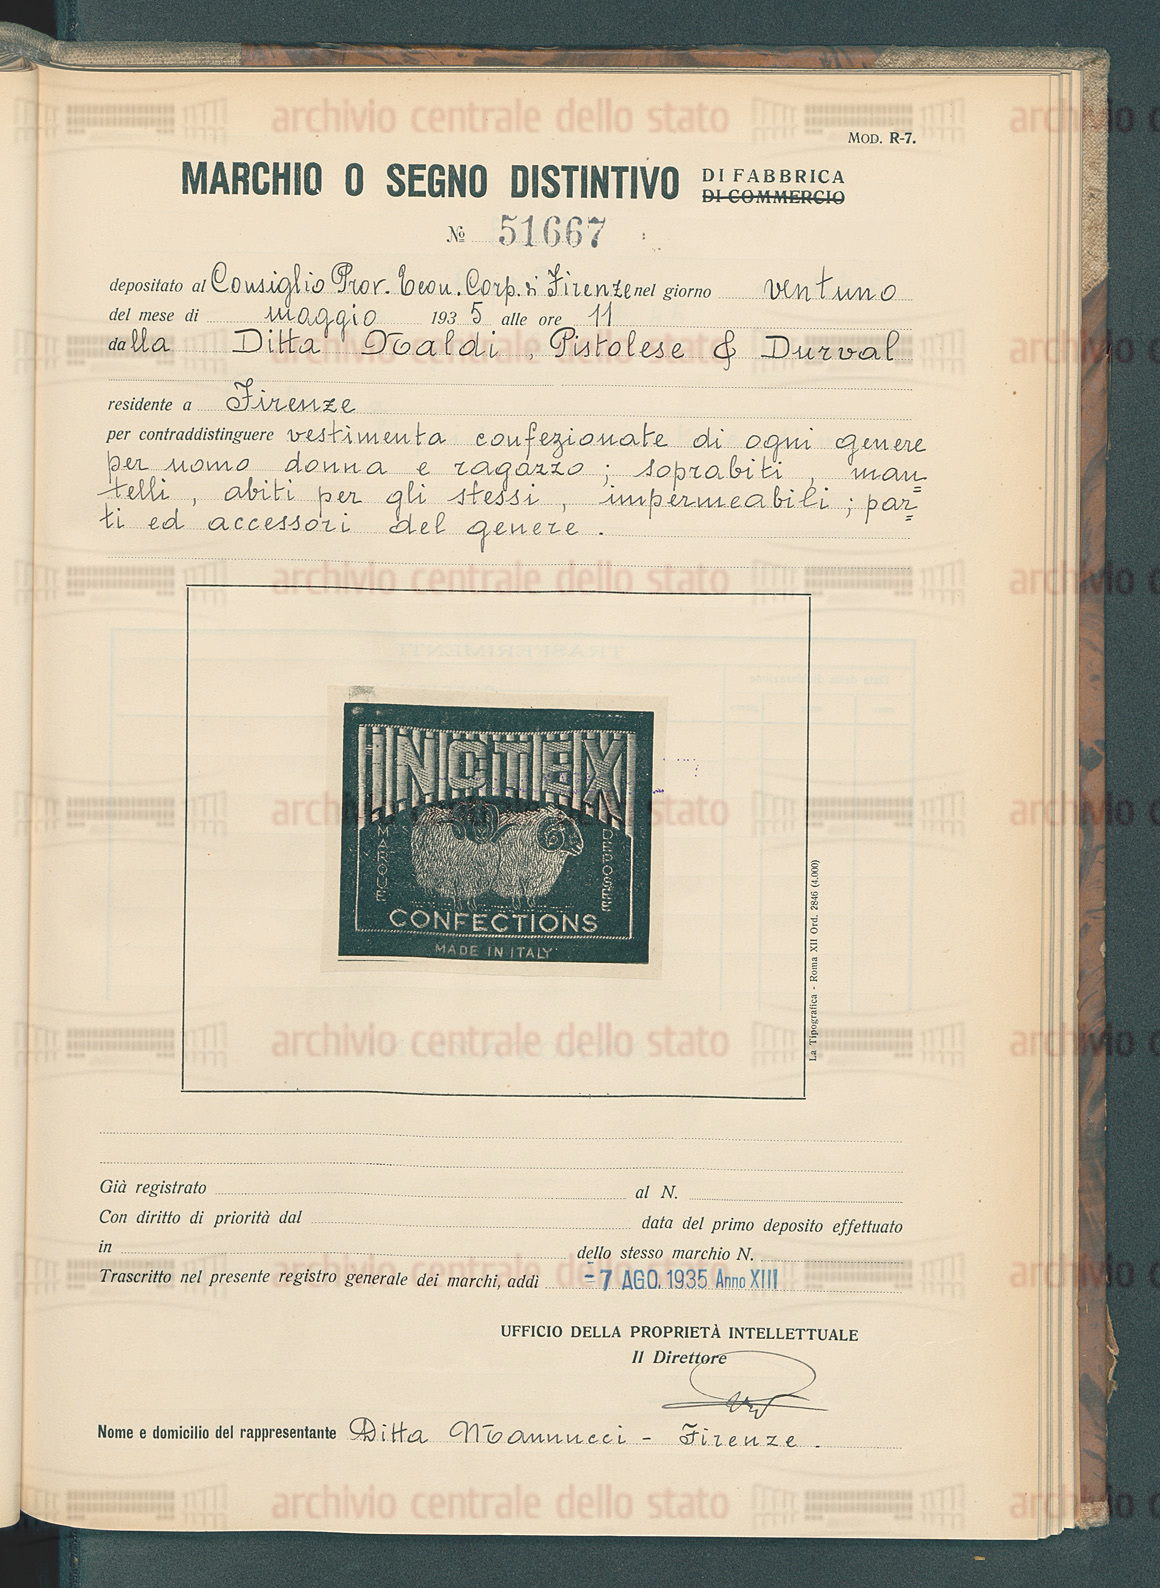 MOD. R-7.
MARCHIO O SEGNO DISTINTIVO DI FABBRICA
DI COMMERCIO
№ 51667
depositato al Consiglio Prov. Econ. Corp. di Firenze nel giorno ventuno
del mese di maggio 1935 alle ore 11
dalla Ditta Naldi, Pistolese & Durval
residente a Firenze
per contraddistinguere vestimenta confezionate di ogni genere
per uomo donna e ragazzo; soprabiti, man=
telli, abiti per gli stessi, impermeabili; par=
ti ed accessori del genere.
INOTEX
MARQUE
DEPOSEE
CONFECTIONS
MADE IN ITALY
La Tipografica - Roma XII Ord. 2846 (4.000)
Già registrato al N.
Con diritto di priorità dal data del primo deposito effettuato
in dello stesso marchio N.
Trascritto nel presente registro generale dei marchi, addì -7 AGO. 1935 Anno XIII
UFFICIO DELLA PROPRIETÀ INTELLETTUALE
Il Direttore
Nome e domicilio del rappresentante Ditta Mannucci - Firenze.
archivio centrale dello stato